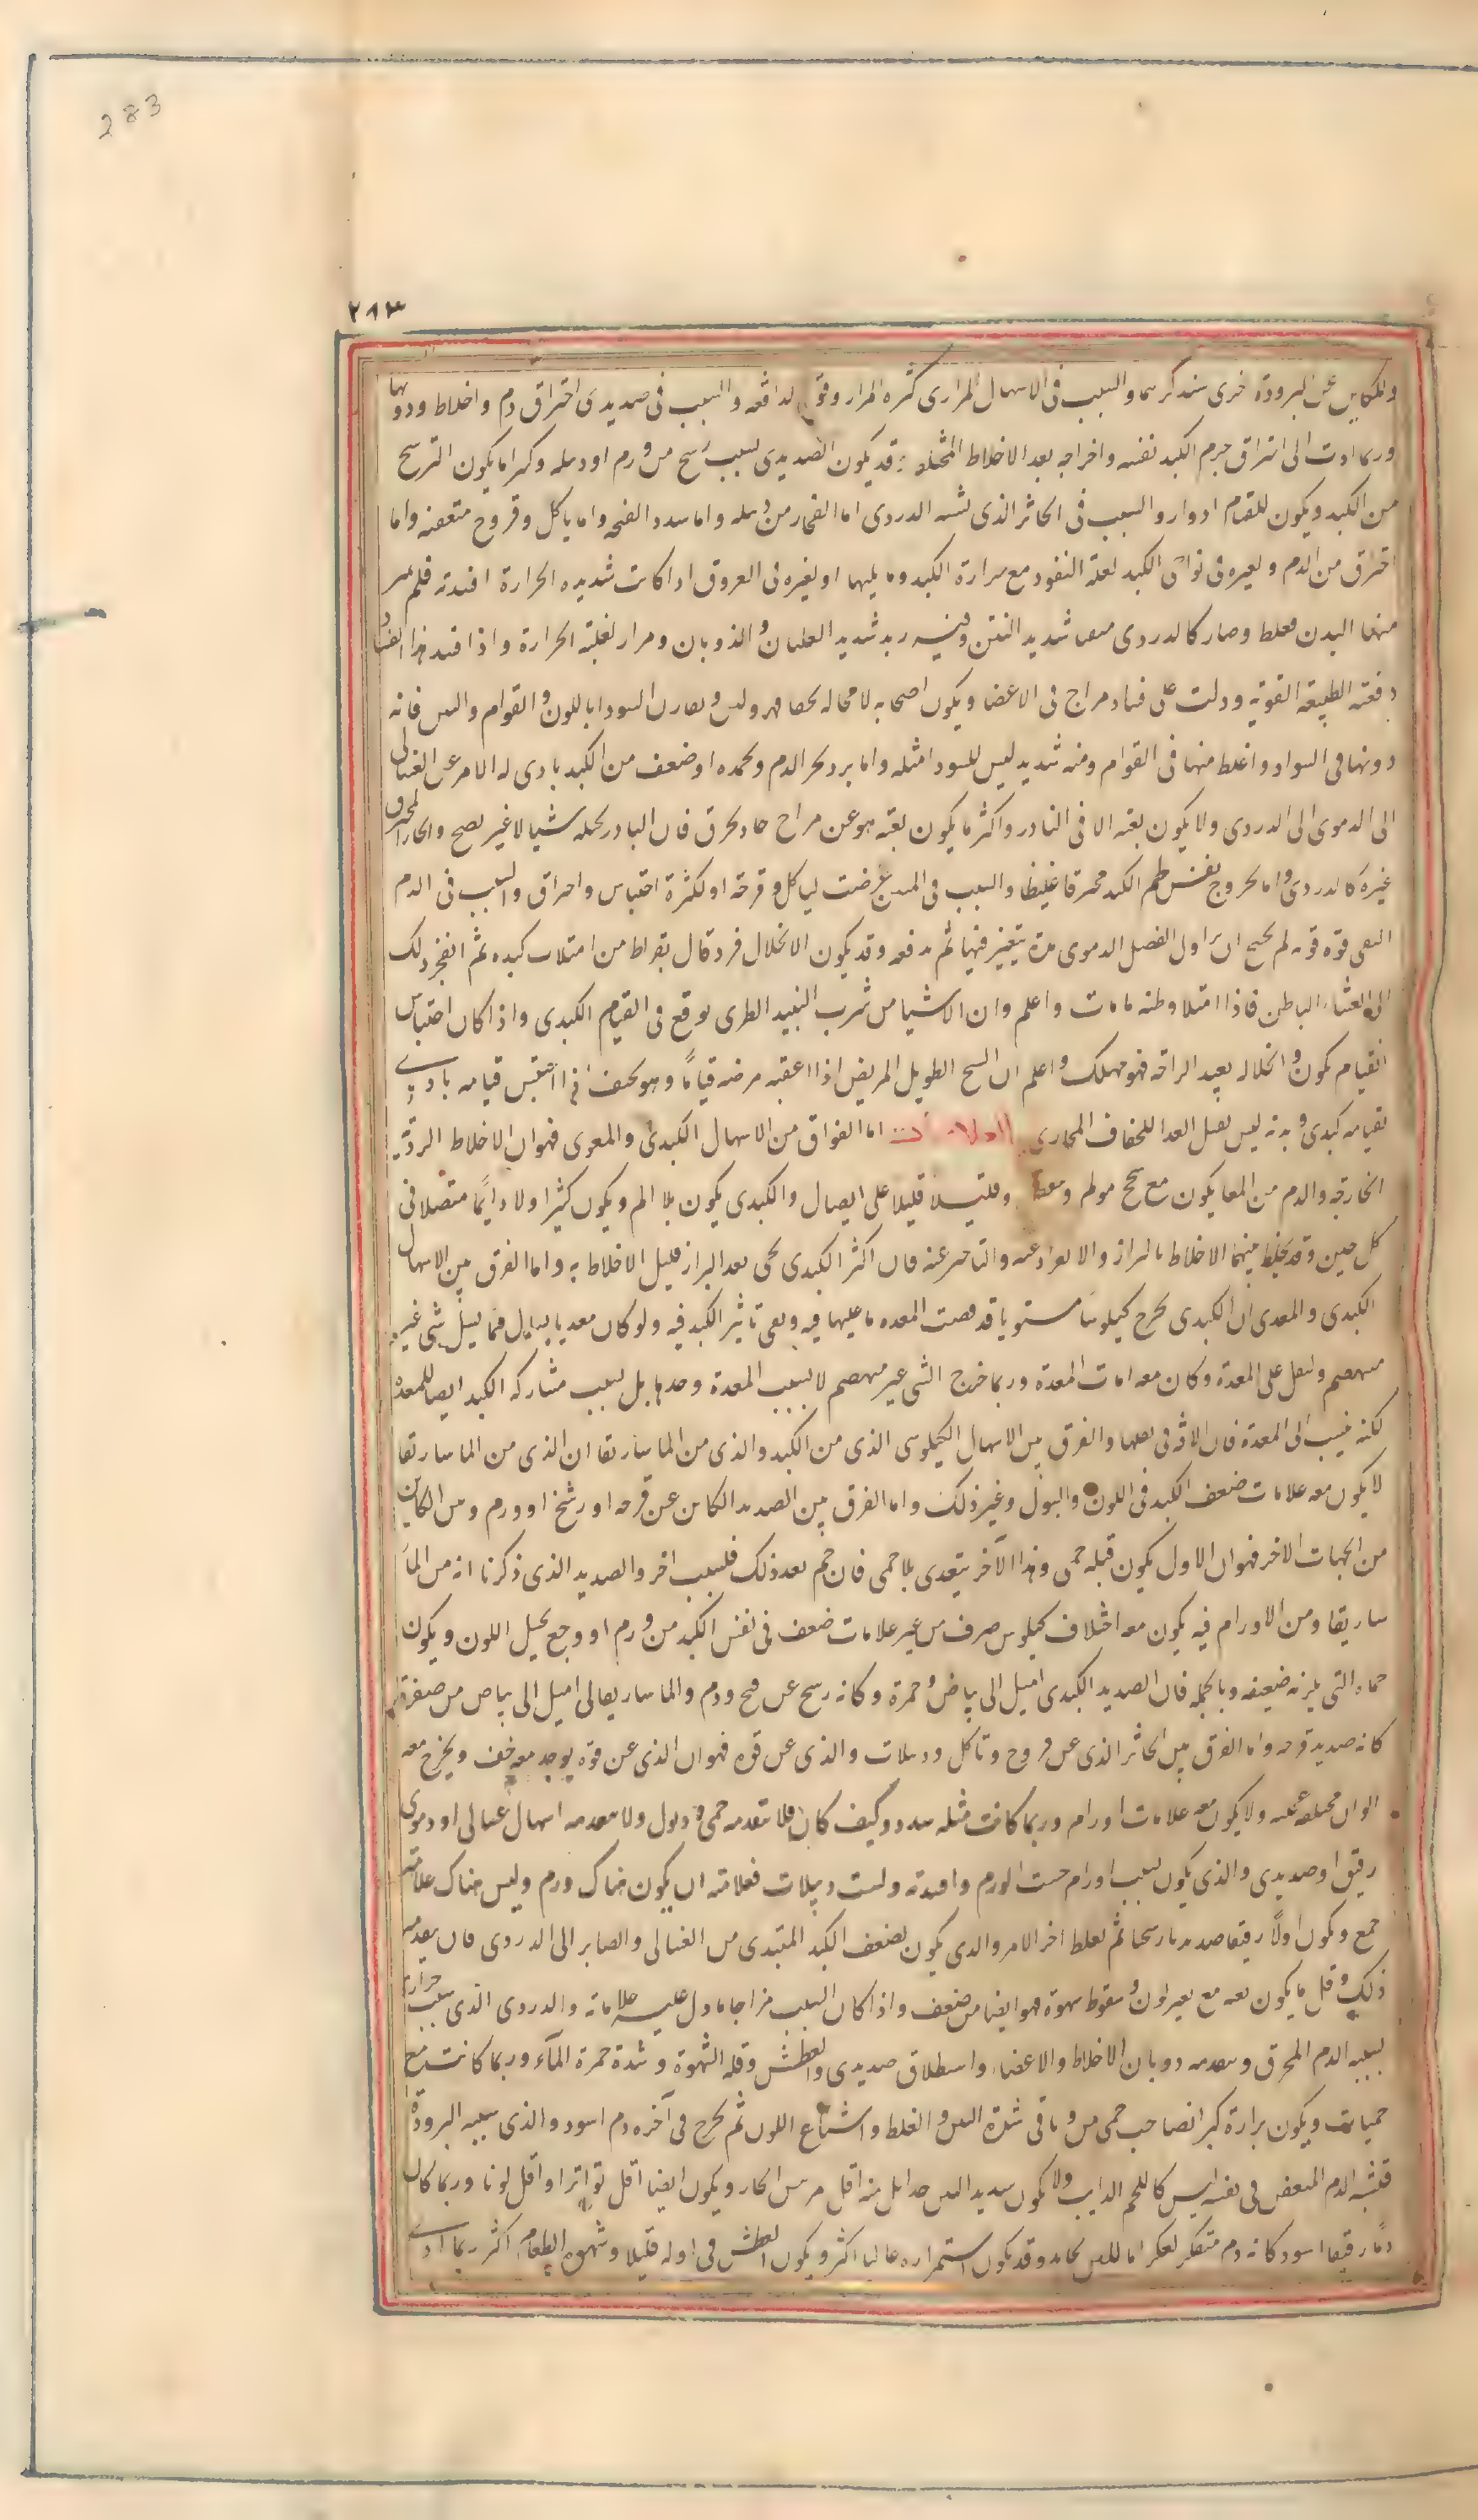 283
٢٨٣
والكاين عن البرودة اخرى سنذكرها والسبب فى الاسهال المرارى كثره المرار وقوة الدافعه والسبب فى صديدى احتراق دم واخلاط وذوبها
وربما ادت الى احتراق جرم الكبد نفسه واخراجه بعد الاخلاط المختلفه وقد يكون الصديدى لسبب رشح من ورم او دبيله وكثيرا ما يكون الترشح
من الكبد ويكون للقيام ادوار والسبب فى الخاثر الذى يشبه الدردى اما انفجار من دبيله واما سدد انفتحه واما تاكل وقروح متعفنه واما
احتراق من الدم وتغيره فى نواحى الكبد لقلة النفوذ مع حرارة الكبد وما يليها او تغيره فى العروق اذا كانت شديده الحرارة افسدته فلم يمر
منها البدن فغلظ وصار كالدردى منتنا شديد النتن وفيه زبد شديد الغليان والذوبان ومرار لغلبة الحرارة واذا فسد هذا الفساد
دفعته الطبيعة القوية ودلت على فساد مزاج فى الاعضا ويكون اصحابه لا محاله نحفا مهزولين ويفارق السودا باللون والقوام والنتن فانه
دونها فى السواد واغلظ منها فى القوام ونتنه شديد ليس للسودا مثله واما برد يخثر الدم ويجمده او ضعف من الكبد يادى له الامر عن الغسالى
الى الدموى الى الدردى ولا يكون بغتة الا فى النادر واكثر ما يكون بغته هو عن مزاج حاد محرق فان البارد يجعله سيالا غير نضج والحار المحرق
غيره كالدردى واما لخروج نفس لحم الكبد محترقا غليظا والسبب فى المنتن عرضت لتاكل وقرحة او لكثرة احتباس واحراق والسبب فى الدم
النقى قوة قويه لم يحتج ان تزاول الفضل الدموى مدة يتغير فيها ثم تدفعه وقد يكون لانحلال فرد قال بقراط من امتلات كبده ثم انفجر ذلك
الى الغشاء الباطن فاذا امتلا بطنه مات واعلم وان الاشيا من شرب النبيذ الطرى يوقع فى القيام الكبدى واذا كان احتباس
القيام يكون وانحلاله يعيد الراحة فهو مهلك واعلم ان السحج الطويل المريض اذا اعقبه مرضه قياما وهو يخف اذا احتبس قيامه بادى
بقيامه كبدى وبدنه ليس يقبل الغذا للجفاف المجارى العلامات اما الفراق من الاسهال الكبدى والمعوى فهو ان الاخلاط الردية
الخارجة والدم من المعا يكون مع سحج مولم ومغص وقليلا قليلا على اتصال والكبدى يكون بلا الم ويكون كثيرا ولا دايما متصلا فى
كل حين وقد يخلط بينهما الاخلاط بالبراز والانفراد عنه والتاخر عنه فان اكثر الكبدى يجى بعد البراز قليل الاخلاط به واما الفرق بين الاسهال
الكبدى والمعدى ان الكبدى يخرج كيلوسا مستويا قد قضت المعده ما عليها فيه وبقى تاثير الكبد فيه ولو كان معديا لسال فيما يسيل شى غير
منهضم ولثقل على المعدة وكان معه افات المعدة وربما خرج الشى غير منهضم لا لسبب المعدة وحدها بل لسبب مشاركه الكبد ايضا للمعدة
لكنه ينسب الى المعدة فان الافة فى فعلها والفرق بين الاسهال الكيلوسى الذى من الكبد والذى من الماساريقا ان الذى من الماساريقا
لا يكون معه علامات ضعف الكبد فى اللون والبول وغير ذلك واما الفرق بين الصديد الكاين عن قرحه او رشح او ورم ومن الكاين
من الجهات الاخر فهو ان الاول يكون قبله حمى وهذا الاخر يبتدى بلا حمى فان حم بعد ذلك فلسبب اخر والصديد الذى ذكرنا انه من الما
ساريقا ومن الاورام فيه يكون معه اختلاف كيلوس صرف من غير علامات ضعف فى نفس الكبد من ورم او وجع يحيل اللون ويكون
حماه التى يلزمه ضعيفه وبالجمله فان الصديد الكبدى اميل الى بياض وحمرة وكانه رشح عن قيح ودم والماساريقالى اميل الى بياض من صفرة
كانه صديد قرحه واما الفرق بين الخاثر الذى عن قروح وتاكل ودبيلات والذى عن قوه فهو ان الذى عن قوه يوجد معه خف ويخرج معه
الوان مختلفه عجيبه ولا يكون معه علامات اورام وربما كانت قبله سدد وكيف كان فلا يتقدمه حمى وذبول ولا يتقدمه اسهال غسالى او دموى
رقيق او صديدى والذى يكون لسبب اورام حبست الورم وافسدته وليست دبيلات فعلامته ان يكون هناك ورم وليس هناك علامة
جمع ويكون اولا رقيقا صديديا رشحا ثم يغلظ اخر الامر والذى يكون لضعف الكبد المبتدى من الغسالى والصاير الى الدردى فان يتقدمه
ذلك وقل ما يكون بغته مع تغير لون وسقوط شهوة فهو ايضا من ضعف واذا كان السبب مزاجا ما دل عليه علاماته والدردى الذى سببه حرارة
لسببه الدم المحرق ويتقدمه ذوبان الاخلاط والاعضاء واستطلاق صديدى والعطش وقله الشهوة وشدة حمرة الماء وربما كانت مع
حميات ويكون برازه كبراز صاحب حمى من وباء فى شدة النتن والغلظ واشباع اللون ثم يخرج فى آخره دم اسود والذى سببه البرودة
فيشبه الدم المتعفن فى نفسه ليس كاللحم الذايب ولا يكون شديد النتن جدا بل نتنه اقل من نتن الحار ويكون ايضا اقل تواترا واقل لونا وربما كان
دما رقيقا اسود كانه دم متعكر تعكرا ما ليس بجامد وقد يكون استمراره غالبا اكثر ويكون العطش فى اوله قليلا وشهوه الطعام اكثر ربما ادى